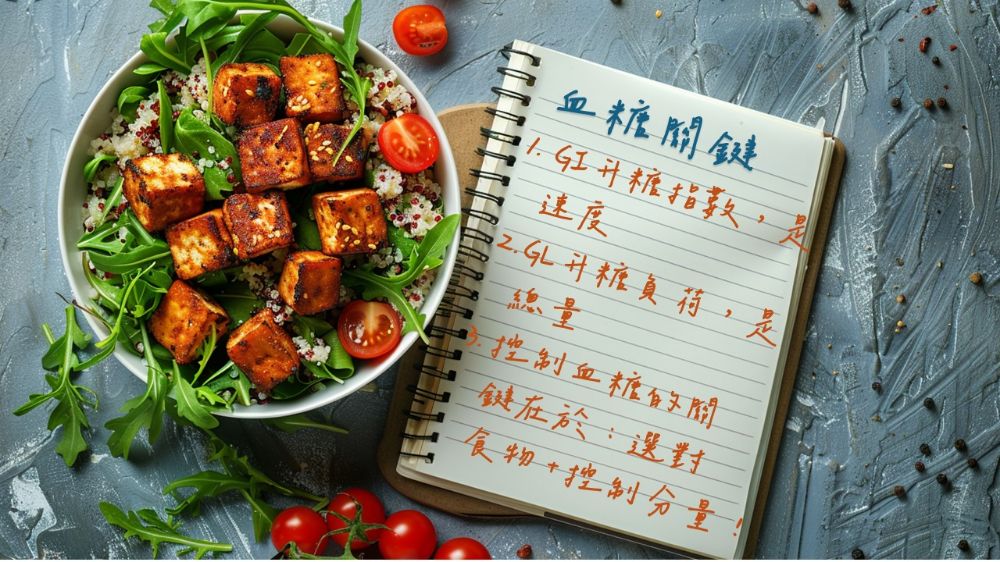 血糖關鍵
1. GI 升糖指數，是
速度
2. GL 升糖負荷，是
總量
3. 控制血糖的關
鍵在於：選對
食物+控制分量！